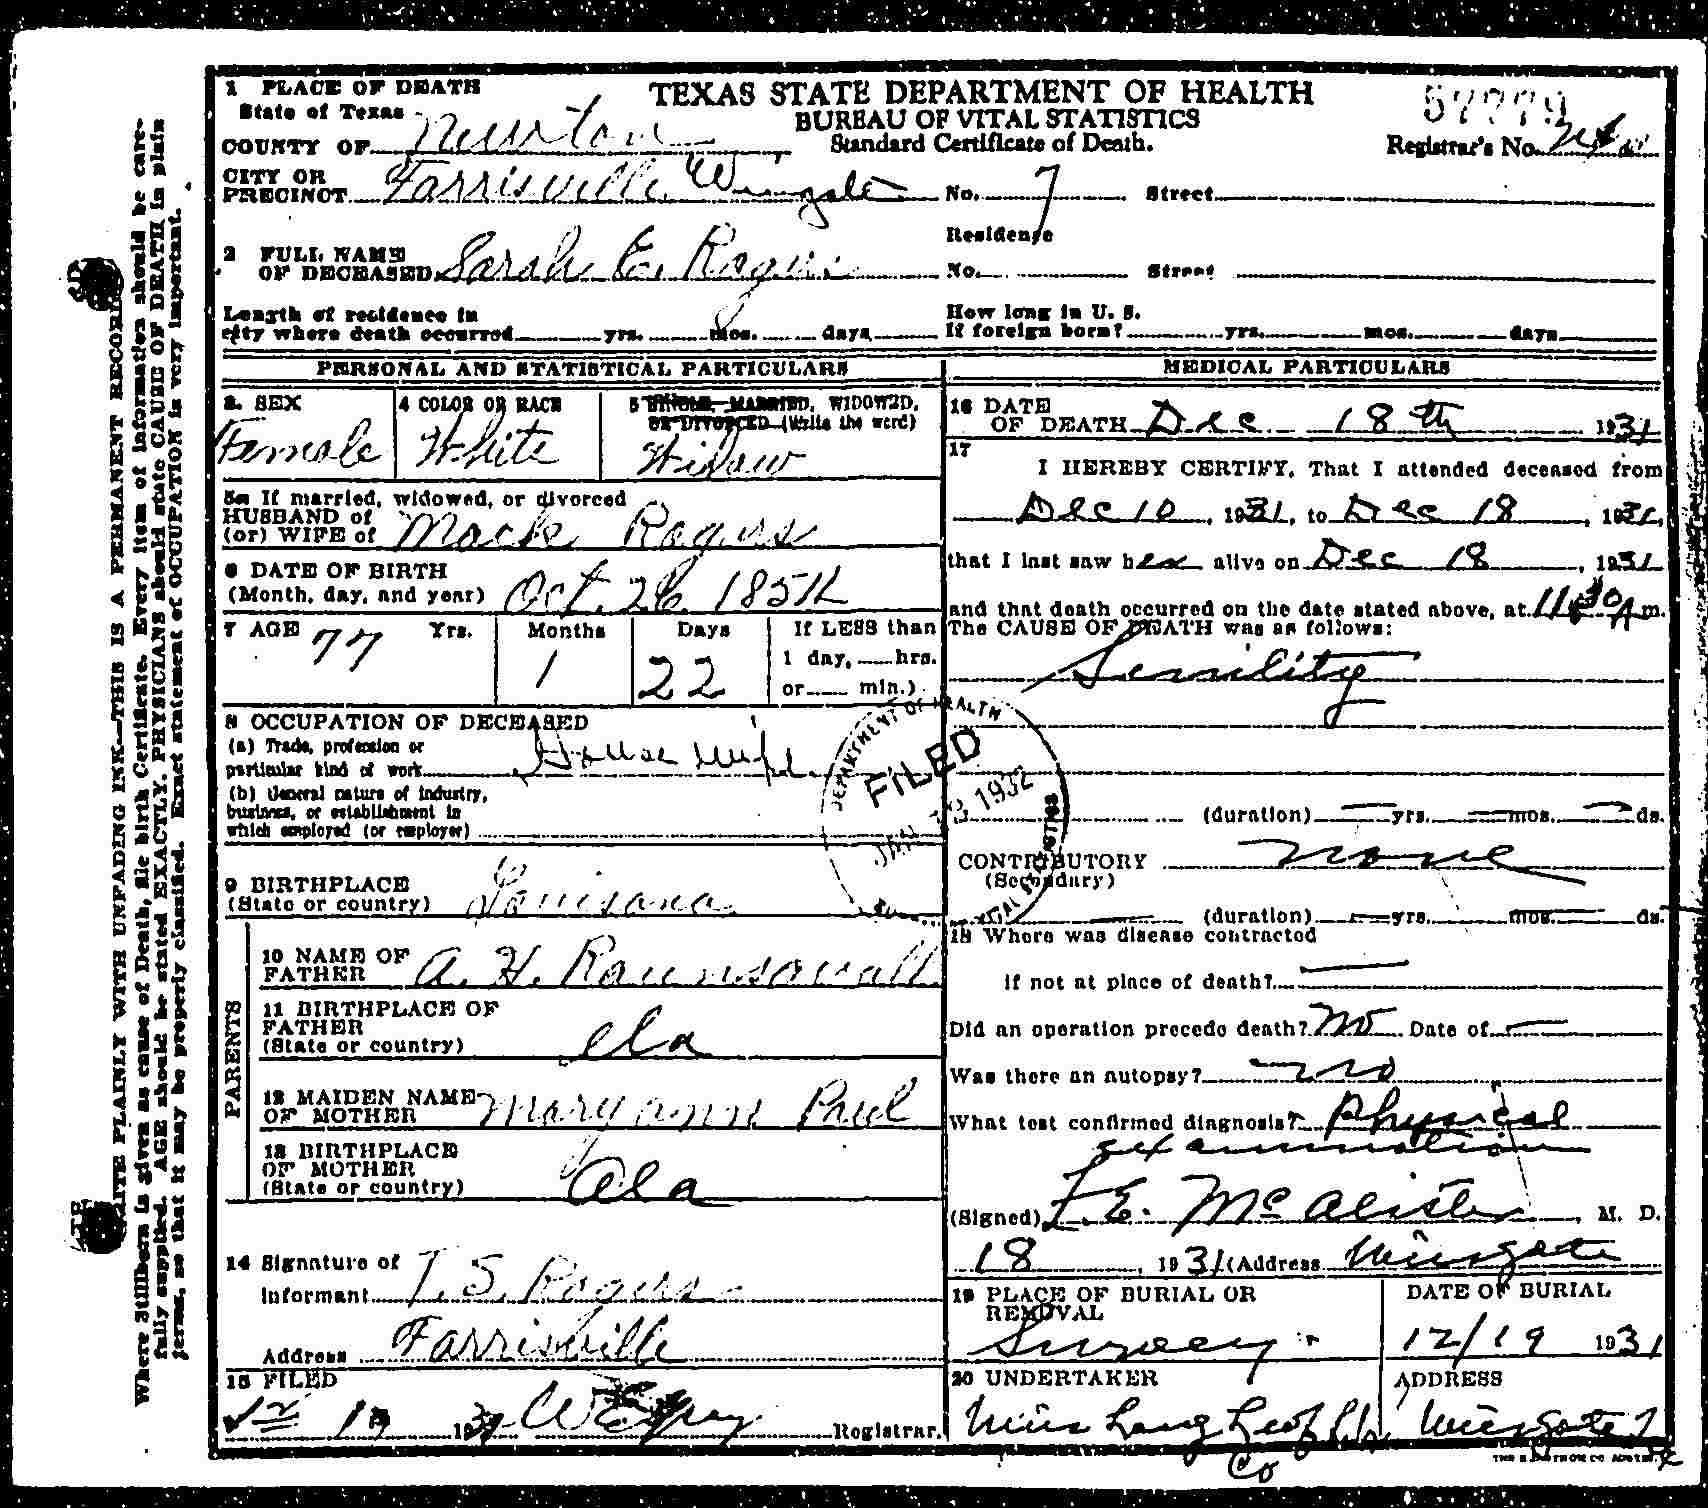 TEXAS STATE DEPARTMENT OF HEALTH
BUREAU OF VITAL STATISTICS
Standard Certificate of Death.
57779
Registrar's No.
1 PLACE OF DEATH
State of Texas
COUNTY OF Newton
CITY OR PRECINCT Farrisville Wiergate No. 7 Street
2 FULL NAME OF DECEASED Sarah E. Rogers
Residence
No. Street
Length of residence in
city where death occurred yrs. mos. days
How long in U. S.
If foreign born? yrs. mos. days
PERSONAL AND STATISTICAL PARTICULARS
3. SEX
Female
4 COLOR OR RACE
White
5 SINGLE, MARRIED, WIDOWED,
OR DIVORCED (Write the word)
Widow
5a If married, widowed, or divorced
HUSBAND of
(or) WIFE of Mack Rogers
6 DATE OF BIRTH
(Month, day, and year) Oct. 26 1854
7 AGE 77 Yrs.
Months 1
Days 22
If LESS than
1 day, hrs.
or min.)
8 OCCUPATION OF DECEASED
(a) Trade, profession or
particular kind of work House wife
(b) General nature of industry,
business, or establishment in
which employed (or employer)
9 BIRTHPLACE
(State or country) Louisana
PARENTS
10 NAME OF
FATHER A. H. Rounsavall
11 BIRTHPLACE OF
FATHER
(State or country) Ala
12 MAIDEN NAME
OF MOTHER Mary Ann Paul
13 BIRTHPLACE
OF MOTHER
(State or country) Ala
14 Signature of
Informant T. S. Rogers
Address Farrisville
15 FILED
19 Registrar.
MEDICAL PARTICULARS
16 DATE
OF DEATH Dec 18th 1931
17
I HEREBY CERTIFY, That I attended deceased from
Dec 10, 1931, to Dec 18, 1931,
that I last saw her alive on Dec 18, 1931
and that death occurred on the date stated above, at 11:30 A m.
The CAUSE OF DEATH was as follows:
Senility
(duration) yrs. mos. ds.
CONTRIBUTORY None
(Secondary)
(duration) yrs. mos. ds.
18 Where was disease contracted
if not at place of death?
Did an operation precede death? No Date of
Was there an autopsy? No
What test confirmed diagnosis? Physical
examination
(Signed) L. E. McAlister, M. D.
18, 1931 (Address Wiergate
19 PLACE OF BURIAL OR
REMOVAL
DATE OF BURIAL
12/19 1931
20 UNDERTAKER
ADDRESS
Co
DEPARTMENT OF HEALTH
FILED
JAN 1932
WRITE PLAINLY WITH UNFADING INK—THIS IS A PERMANENT RECORD
Where Stillborn is given as cause of Death, file birth Certificate. Every item of information should be care-
fully supplied. AGE should be stated EXACTLY. PHYSICIANS should state CAUSE OF DEATH in plain
terms, so that it may be properly classified. Exact statement of OCCUPATION is very important.